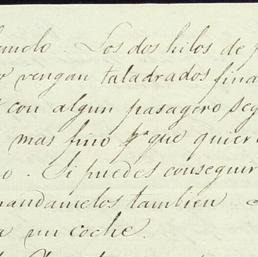 Los dos hilos de
vengan taladrados fina
con algun pasagero seg
mas fino pª que quier
o. Si puedes conseguir
mandamelos tambien
a un coche.